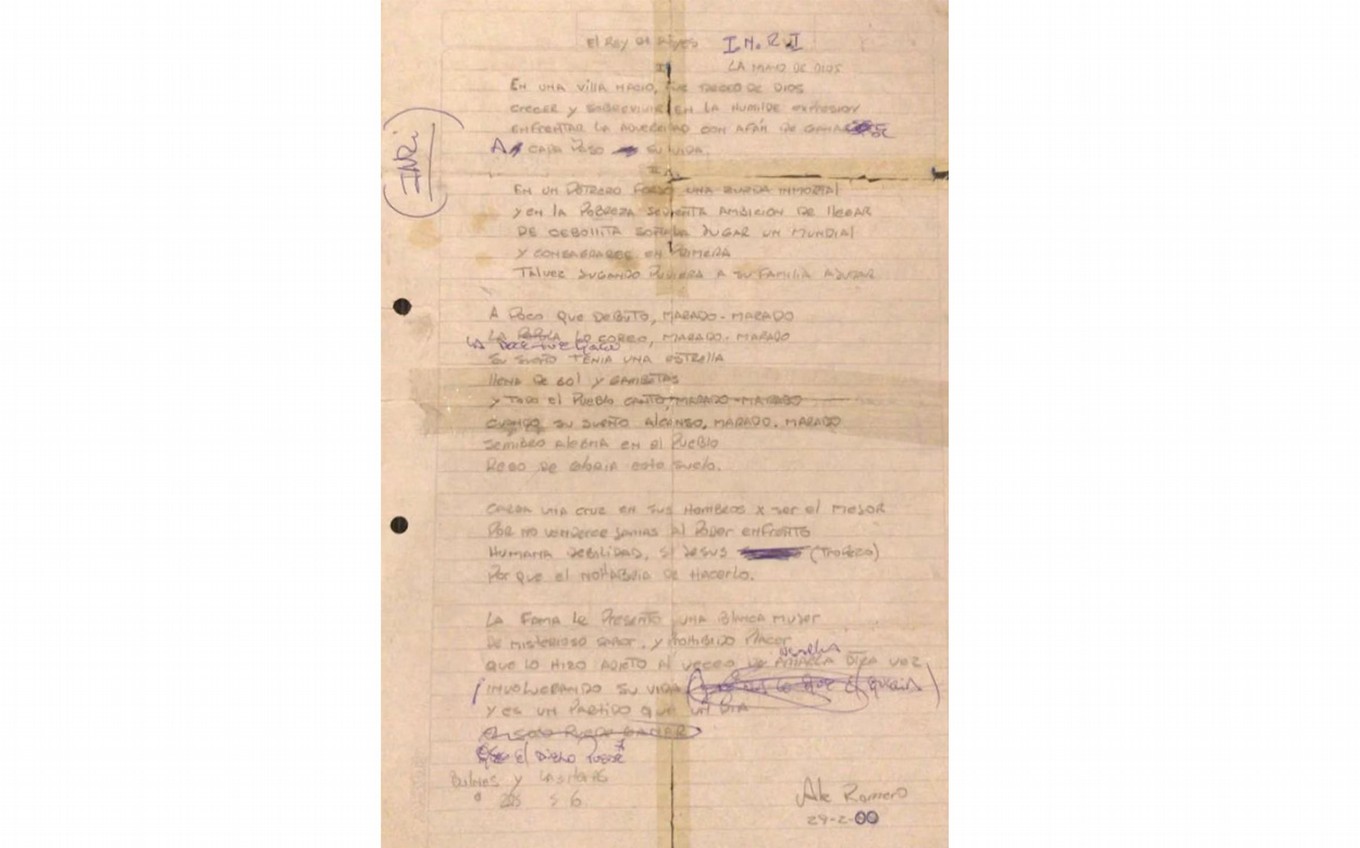 El Rey de Reyes I.N.R.I
LA MANO DE DIOS
(INRi)
I
EN UNA VillA NACIO, FUE DESEO DE DIOS
CRECER y SOBREVIVIR EN LA HUMILDE EXPRESION
ENFRENTAR LA ADVERCIDAD CON AFÁN DE GANARSE
A CADA PASO SU VIDA.
II
EN UN POTRERO FORJO UNA ZURDA INMORTAl
y EN la POBREZA SEDIENTA AMBICION DE llEGAR
DE CEBOllITA SOÑABA JUGAR UN MUNDIAl
Y CONSAGRARSE EN PRIMERA
TAlVEZ JUGANDO PUDIERA A SU FAMILIA AJUDAR
A POCO QUE DEBUTO, MARADO-MARADO
LA LO COREO, MARADO-MARADO
LA DOCE FUE QUIEN
SU SUEÑO TENIA UNA ESTRELLA
llENA DE GOl y GAMBETAS
y TODO El PUEBlO CANTO, MARADO-MARADO
CUANDO SU SUEÑO AlCANSO, MARADO. MARADO
SEMBRO AlEGRIA EN El PUEBlO
REGO DE GlORIA ESTE SUElO.
CARGA UNA CRUZ EN SUS HOMBROS X SER El MEJOR
POR NO VENDERCE JAMAS Al PODER ENFRENTO
HUMANA DEBILIDAD, SI JESUS (TROPEZO)
POR QUE El NO HABRIA DE HACERLO.
LA FAMA LE PRESENTO UNA BlANCA MUJER
DE MISTERIOSO SABOR, Y PROHIBIDO PLACER
QUE LO HIZO ADICTO Al DECEO DE OTRA VEZ
INVOLUCRANDO SU VIDA
Y ES UN PARTIDO QUE UN DIA
El SOLO PUEDE GANAR
QUE El DIEGO PUEDE
Ale Romero
29-2-00